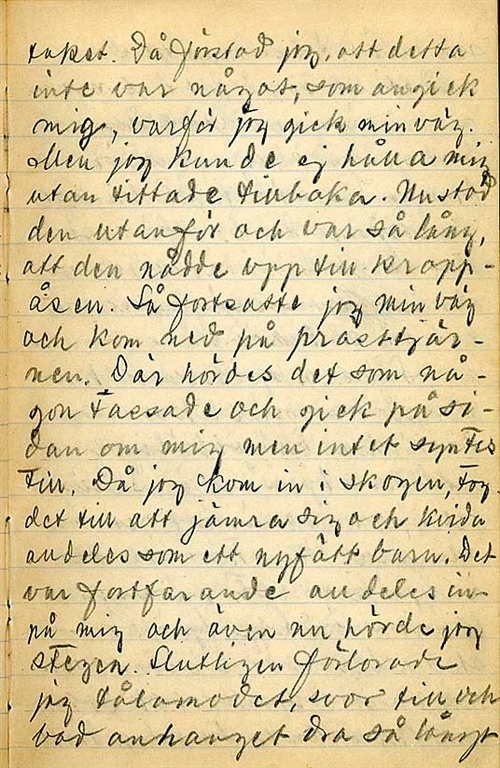 taket. Då förstod jag, att detta
inte var något, som angick
mig, varför jag gick min väg.
Men jag kunde ej hålla mig
utan tittade tillbaka. Nu stod
den utanför och var så lång,
att den nådde upp till kropp-
åsen. Så fortsatte jag min väg
och kom ned på prästtjär-
nen. Där hördes det som nå-
gon tassade och gick på si-
dan om mig men intet syntes
till. Då jag kom in i skogen, tog
det till att jämra sig och kvida
andeles som ett nyfött barn. Det
var fortfarande andeles in-
på mig och även nu hörde jag
stegen. Slutligen förlorade
jag tålamodet, svor till och
bad anhanget dra så långt